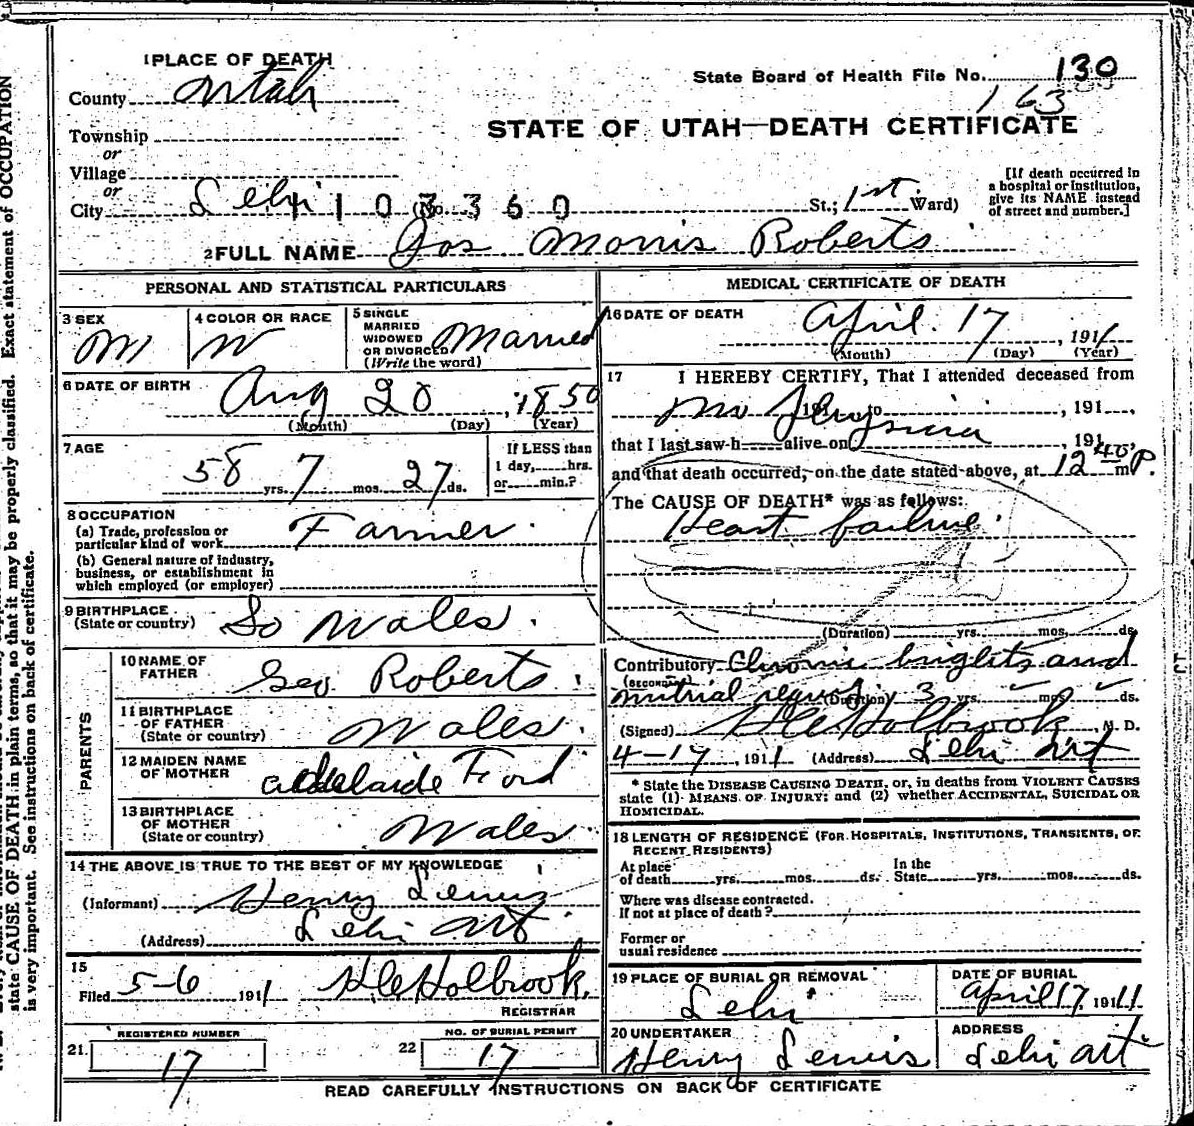 1 PLACE OF DEATH
State Board of Health File No. 130
163
County Utah
STATE OF UTAH—DEATH CERTIFICATE
Township
or
Village
or
City Lehi (No. St.; 1st. Ward)
1103360
[If death occurred in
a hospital or institution,
give its NAME instead
of street and number.]
2 FULL NAME Jos Morris Roberts
PERSONAL AND STATISTICAL PARTICULARS
3 SEX
M
4 COLOR OR RACE
W
5 SINGLE
MARRIED
WIDOWED
OR DIVORCED
(Write the word)
Married
6 DATE OF BIRTH
Aug 20, 1850
(Month) (Day) (Year)
7 AGE
58 yrs. 7 mos. 27 ds.
If LESS than
1 day, hrs.
or min.?
8 OCCUPATION
(a) Trade, profession or
particular kind of work Farmer
(b) General nature of industry,
business, or establishment in
which employed (or employer)
9 BIRTHPLACE
(State or country) So Wales.
PARENTS
10 NAME OF
FATHER Geo Roberts
11 BIRTHPLACE
OF FATHER
(State or country) Wales.
12 MAIDEN NAME
OF MOTHER Adelaide Ford
13 BIRTHPLACE
OF MOTHER
(State or country) Wales
14 THE ABOVE IS TRUE TO THE BEST OF MY KNOWLEDGE
(Informant) Henry Lewis
(Address) Lehi Ut
15
Filed 5-6 1911 Holbrook.
REGISTRAR
21 REGISTERED NUMBER
17
22 NO. OF BURIAL PERMIT
17
MEDICAL CERTIFICATE OF DEATH
16 DATE OF DEATH
April. 17, 1911
(Month) (Day) (Year)
17 I HEREBY CERTIFY, That I attended deceased from
191 to , 191 ,
No Physician
that I last saw h alive on , 191 ,
and that death occurred, on the date stated above, at 12 40 m P.
The CAUSE OF DEATH* was as follows:
Heart failure.
(Duration) yrs. mos. ds.
Contributory Chronic brights and
(SECONDARY)
mitrial (Duration) 3 yrs. mos. ds.
(Signed) Holbrook M. D.
4-17, 1911 (Address) Lehi Ut
* State the DISEASE CAUSING DEATH, or, in deaths from VIOLENT CAUSES
state (1) MEANS OF INJURY; and (2) whether ACCIDENTAL, SUICIDAL OR
HOMICIDAL.
18 LENGTH OF RESIDENCE (FOR HOSPITALS, INSTITUTIONS, TRANSIENTS, OR
RECENT RESIDENTS)
At place
of death yrs. mos. ds.
In the
State yrs. mos. ds.
Where was disease contracted.
If not at place of death?
Former or
usual residence
19 PLACE OF BURIAL OR REMOVAL
Lehi
DATE OF BURIAL
April 17 1911
20 UNDERTAKER
Henry Lewis
ADDRESS
Lehi Ut
READ CAREFULLY INSTRUCTIONS ON BACK OF CERTIFICATE
state CAUSE OF DEATH in plain terms, so that it may be properly classified. Exact statement of OCCUPATION
is very important. See instructions on back of certificate.